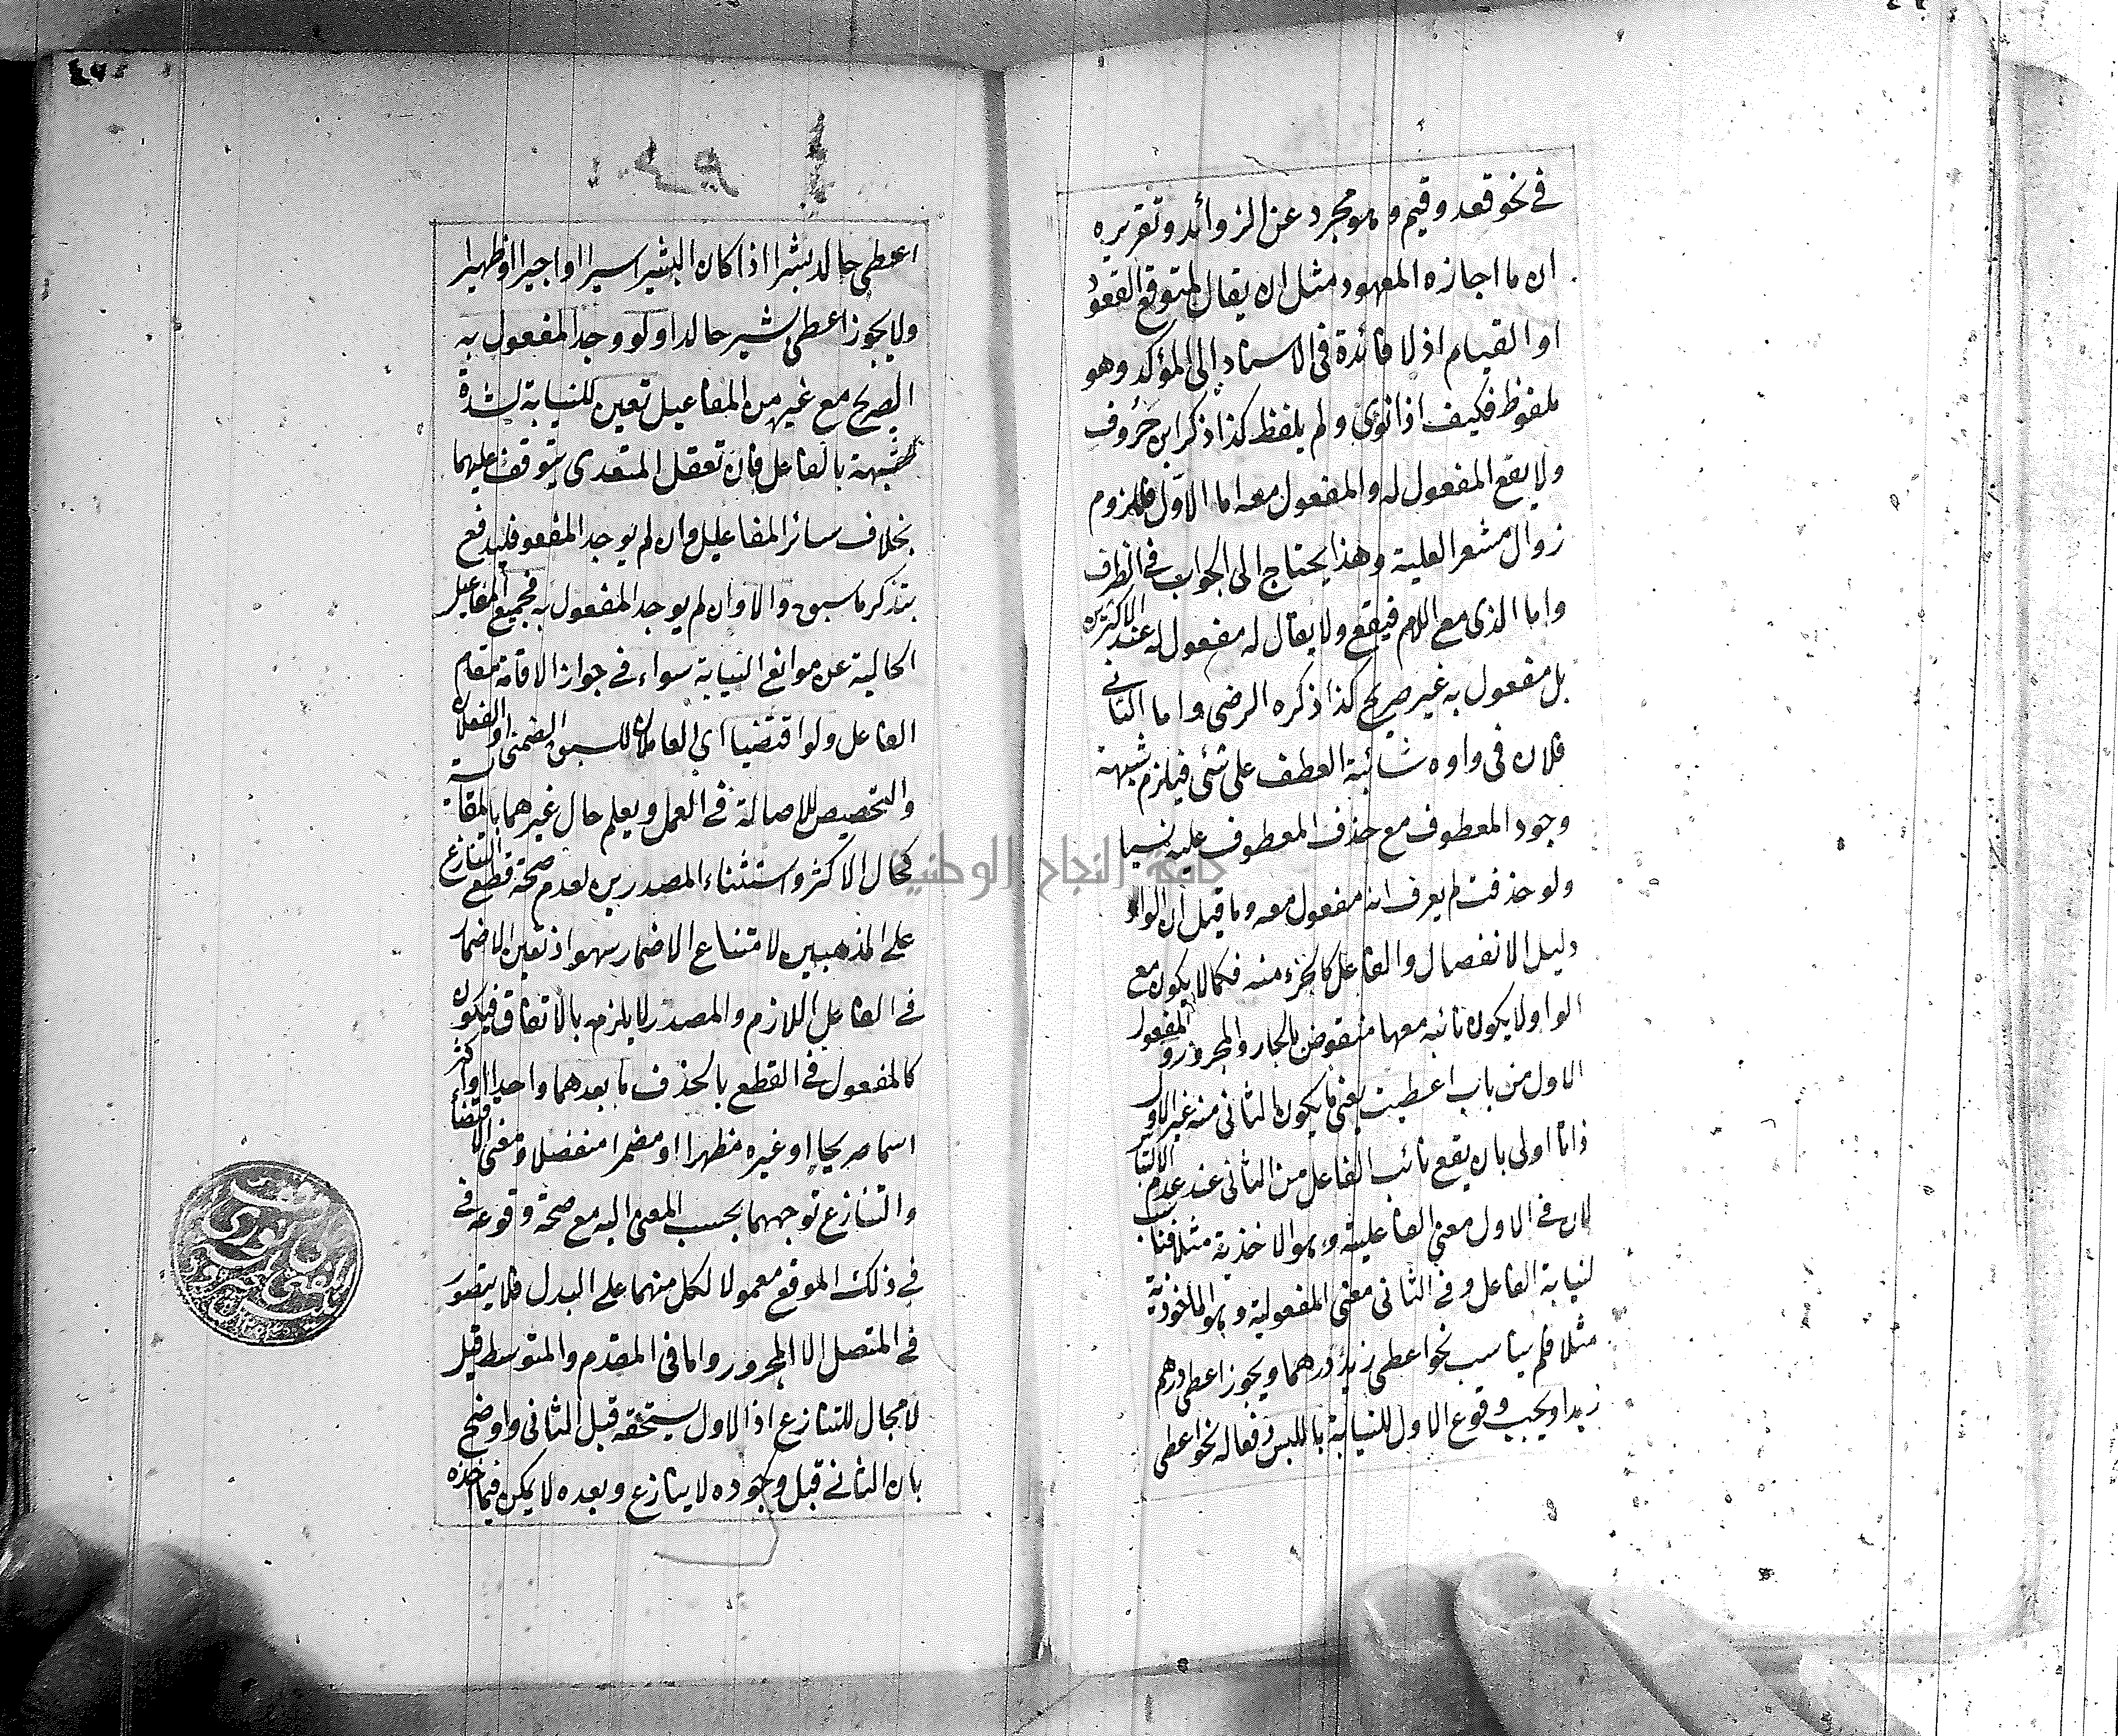 في نحو قعد وقيم وهو مجرد عن الزوائد وتقريره
ان ما اجازه المعهود مثل ان يقال لمتوقع القعود
او القيام اذ لا فائدة في الاسناد الى المؤكد وهو
ملفوظ فكيف اذا نوى ولم يلفظ كذا ذكر ابن خروف
ولا يقع المفعول له والمفعول معه اما الاول فللزوم
زوال مشعر العلية وهذا يحتاج الى الجواب في الظرف
واما الذى مع اللام فيقع ولا يقال له مفعول له عند الاكثرين
بل مفعول به غير صريح كذا ذكره الرضى واما الثانى
فلان في واوه شائبة العطف على شئ فيلزم شبهة
وجود المعطوف مع حذف المعطوف عليه نسيا
ولو حذفت لم يعرف انه مفعول معه وما قيل ان الواو
دليل الانفصال والفاعل كالجزء منه فكما لا يكون مع
الواو لا يكون نائبه معها منقوض بالجار والمجرور والمفعول
الاول من باب اعطيت يعنى ما يكون الثانى منه غير الاول
ذاتا اولى بان يقع نائب الفاعل من الثانى عند عدم الالتباس
لان في الاول معنى الفاعلية وهو الاخذية مثلا فناسب
لنيابة الفاعل وفى الثانى معنى المفعولية وهو المأخوذية
مثلا فلم يناسب نحو اعطى زيد درهما ويجوز اعطى درهم
زيدا ويجب وقوع الاول للنيابة باللبس دفعا له نحو اعطى
اعطى خالد بشرا اذا كان البشير اسيرا او اجيرا او ظهيرا
ولا يجوز اعطى بشير خالدا ولو وجد المفعول به
الصريح مع غيره من المفاعيل تعين للنيابة لشدة
شبهه بالفاعل فان تعقل المتعدى يتوقف عليهما
بخلاف سائر المفاعيل وان لم يوجد المفعو فليدفع
بتذكر ما سبق والا وان لم يوجد المفعول به فجميع المفاعيل
الخالية عن موانع النيابة سواء في جواز الاقامة مقام
الفاعل ولو اقتضيا اى العاملان للسبق الضمنى او الفعلان
والتخصيص للاصالة في العمل ويعلم حال غيرهما بالمقايسة
كحال الاكثر واستثناء المصدرين لعدم صحة قطع التنازع
على المذهبين لامتناع الاضمار سهو اذ تعين الاضمار
في الفاعل اللازم والمصدر لا يلزمه بالاتفاق فيكون
كالمفعول في القطع بالحذف ما بعدهما واحدا او اكثر
اسما صريحا او غيره مظهرا او مضمرا منفصلا ومعنى الاقتضاء
والتنازع توجههما بحسب المعنى اليه مع صحة وقوعه في
في ذلك الموقع معمولا لكل منهما على البدل فلا يتصور
في المتصل الا المجرور واما في المقدم والمتوسط قيل
لا مجال للتنازع اذ الاول يستحقه قبل الثانى واوضح
بان الثانى قبل وجوده لا ينازع وبعده لا يمكن فيما اخذه
جامعة النجاح الوطنية